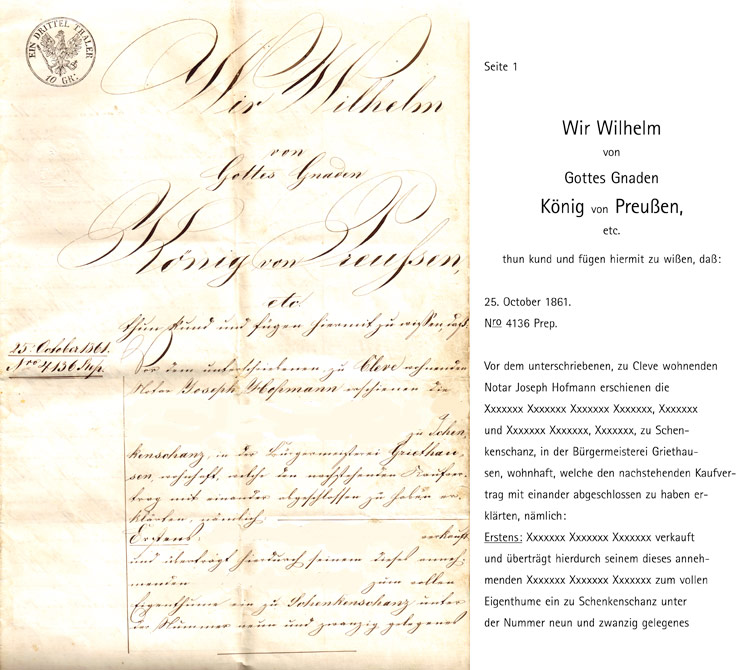 EIN DRITTEL THALER
10 GR:
Wir Wilhelm
von
Gottes Gnaden
König von Preußen,
etc.
thun kund und fügen hiermit zu wissen, daß:
25. October 1861.
Nro 4136 Prep.
Vor dem unterschriebenen, zu Cleve wohnenden
Notar Joseph Hofmann erschienen die
zu Schen-
kenschanz, in der Bürgermeisterei Griethau-
sen, wohnhaft, welche den nachstehenden Kaufver-
trag mit einander abgeschlossen zu haben er-
klärten, nämlich:
Erstens: verkauft
und überträgt hierdurch seinem dieses anneh-
menden zum vollen
Eigenthume ein zu Schenkenschanz unter
der Nummer neun und zwanzig gelegenes
Seite 1
Wir Wilhelm
von
Gottes Gnaden
König von Preußen,
etc.
thun kund und fügen hiermit zu wißen, daß:
25. October 1861.
Nro 4136 Prep.
Vor dem unterschriebenen, zu Cleve wohnenden
Notar Joseph Hofmann erschienen die
Xxxxxxx Xxxxxxx Xxxxxxx Xxxxxxx, Xxxxxxx
und Xxxxxxx Xxxxxxx, Xxxxxxx, zu Schen-
kenschanz, in der Bürgermeisterei Griethau-
sen, wohnhaft, welche den nachstehenden Kaufver-
trag mit einander abgeschlossen zu haben er-
klärten, nämlich:
Erstens: Xxxxxxx Xxxxxxx Xxxxxxx verkauft
und überträgt hierdurch seinem dieses anneh-
menden Xxxxxxx Xxxxxxx Xxxxxxx zum vollen
Eigenthume ein zu Schenkenschanz unter
der Nummer neun und zwanzig gelegenes